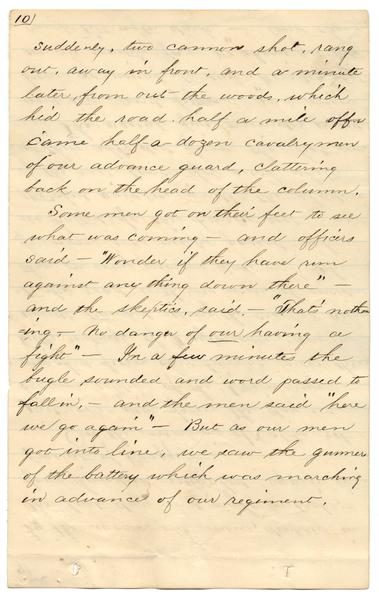 10)
suddenly, two cannon shot, rang
out, away in front, and a minute
later, from out the woods, which
hid the road, half a mile off
came half-a-dozen cavalrymen
of our advance guard, clattering
back on the head of the column.
Some men got on their feet to see
what was coming - and officers
said - "Wonder if they have run
against any thing down there" -
and the skeptics, said, - "That's noth
=ing, - No danger of our having a
fight" - In a few minutes the
bugle sounded and word passed to
fall in, - and the men said "here
we go again" - But as our men
got into line, we saw the gunners
of the battery which was marching
in advance of our regiment,